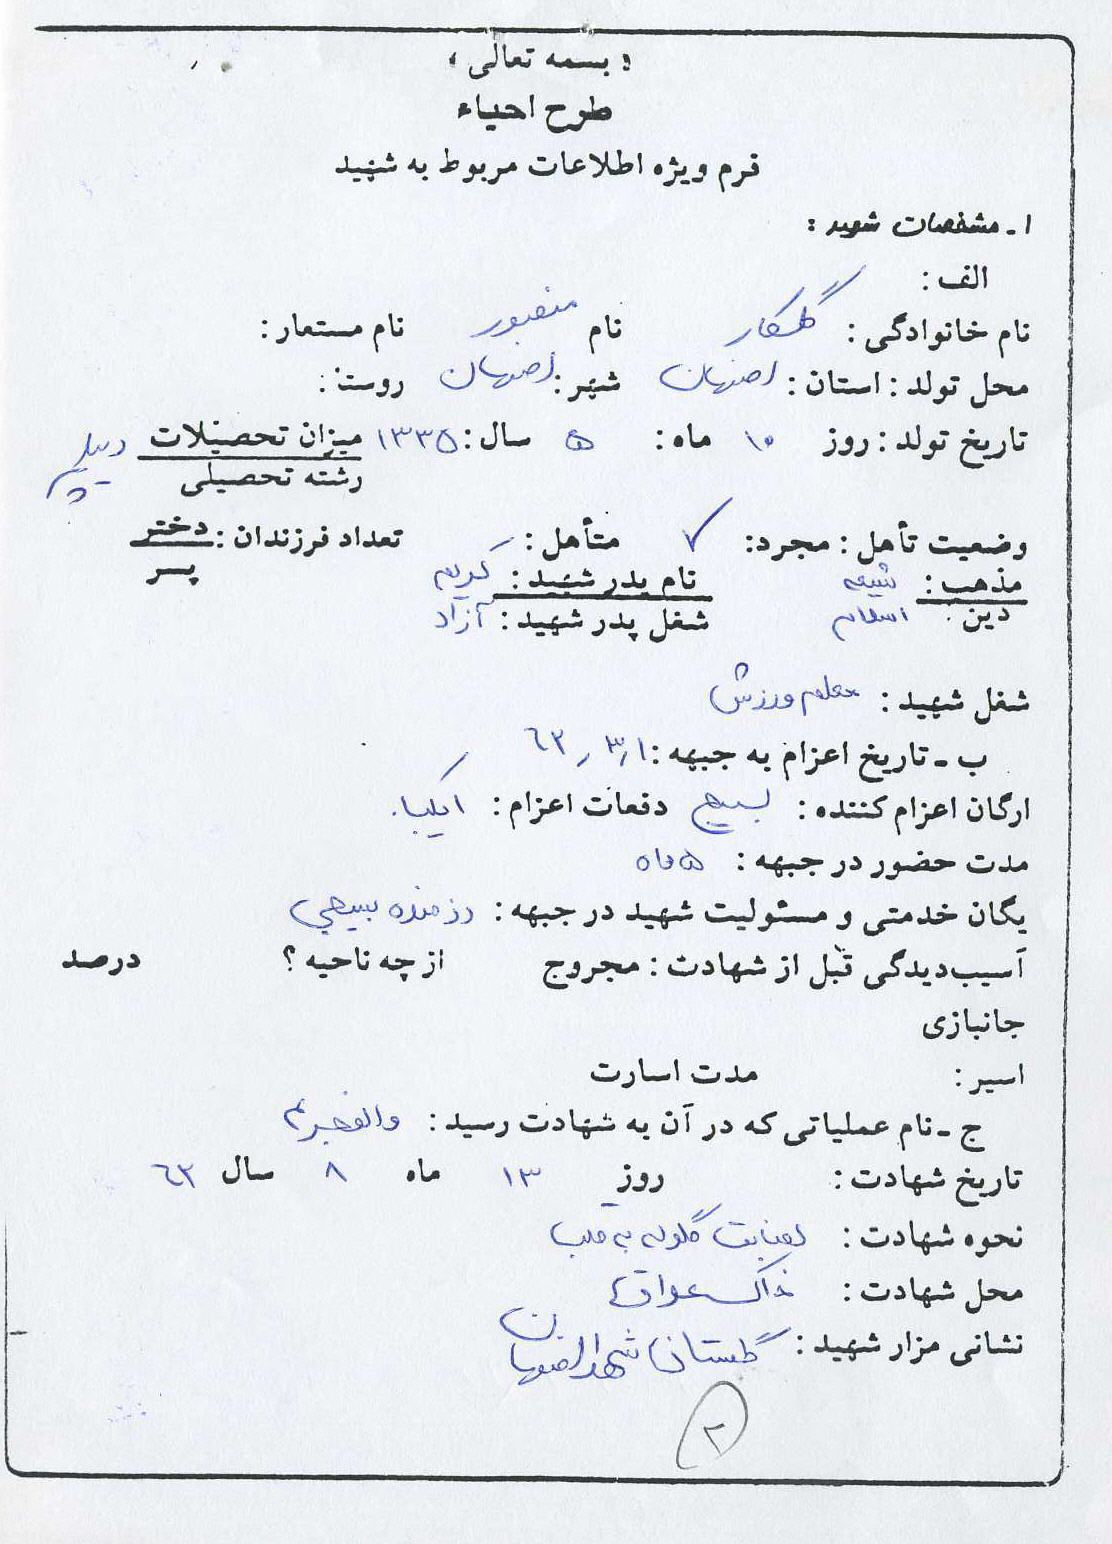 « بسمه تعالی »
طرح احیاء
فرم ویژه اطلاعات مربوط به شهید
۱ـ مشخصات شهید :
الف :
نام خانوادگی : گلکار نام منصور نام مستعار :
محل تولد : استان : اصفهان شهر : اصفهان روستا :
تاریخ تولد : روز ۱۰ ماه : ۵ سال : ۱۳۳۵ میزان تحصیلات دیپلم
رشته تحصیلی
وضعیت تأهل : مجرد : ✓ متأهل : ـ تعداد فرزندان : دختر
پسر
مذهب : شیعه نام پدر شهید : کریم
دین : اسلام شغل پدر شهید : آزاد
شغل شهید : معلم ورزش
ب ـ تاریخ اعزام به جبهه : ۶۲٫۳٫۱
ارگان اعزام کننده : بسیج دفعات اعزام : یکبار
مدت حضور در جبهه : ۵ ماه
یگان خدمتی و مسئولیت شهید در جبهه : رزمنده بسیجی
آسیب‌دیدگی قبل از شهادت : مجروح از چه ناحیه ؟ درصد
جانبازی
اسیر : مدت اسارت
ج ـ نام عملیاتی که در آن به شهادت رسید : والفجر ۴
تاریخ شهادت : روز ۱۳ ماه ۸ سال ۶۲
نحوه شهادت : اصابت گلوله به قلب
محل شهادت : خاک عراق
نشانی مزار شهید : گلستان شهدا اصفهان
۲